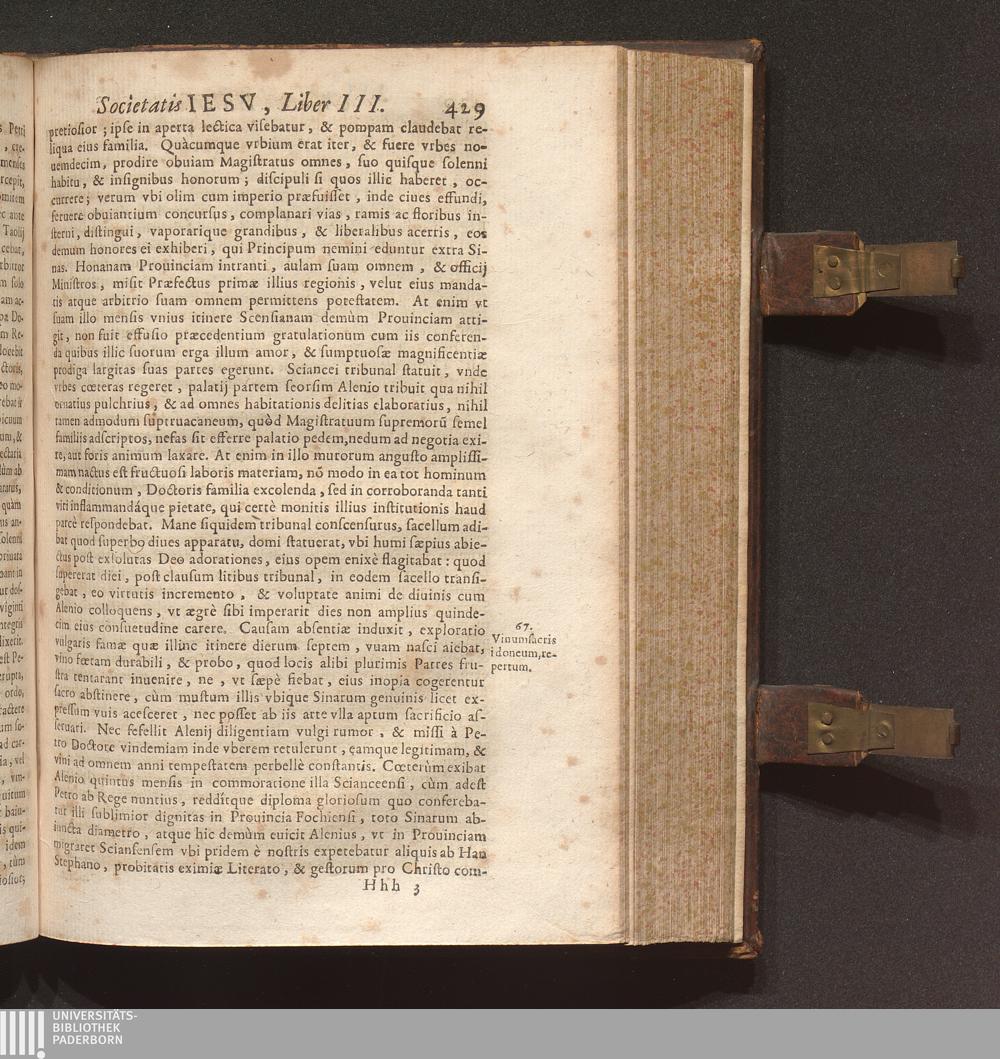 Societatis IESV, Liber III. 429
pretiosior; ipse in aperta lectica visebatur, & pompam claudebat re-
liqua eius familia. Quàcumque vrbium erat iter, & fuere vrbes no-
uemdecim, prodire obuiam Magistratus omnes, suo quisque solenni
habitu, & insignibus honorum; discipuli si quos illic haberet, oc-
currere; verum vbi olim cum imperio præfuisset, inde ciues effundi,
feruere obuiantium concursus, complanari vias, ramis ac floribus in-
sterni, distingui, vaporarique grandibus, & liberalibus acerris, eos
demum honores ei exhiberi, qui Principum nemini eduntur extra Si-
nas. Honanam Prouinciam intranti, aulam suam omnem, & officij
Ministros, misit Præfectus primæ illius regionis, velut eius manda-
tis atque arbitrio suam omnem permittens potestatem. At enim vt
suam illo mensis vnius itinere Scensianam demùm Prouinciam atti-
git, non fuit effusio præcedentium gratulationum cum iis conferen-
da quibus illic suorum erga illum amor, & sumptuosæ magnificentiæ
prodiga largitas suas partes egerunt. Sciancei tribunal statuit, vnde
vrbes cœteras regeret, palatij partem seorsim Alenio tribuit qua nihil
ornatius pulchrius, & ad omnes habitationis delitias elaboratius, nihil
tamen admodum suptruacaneum, quòd Magistratuum supremorũ semel
familiis adscriptos, nefas sit efferre palatio pedem, nedum ad negotia exi-
re, aut foris animum laxare. At enim in illo murorum angusto amplissi-
mam nactus est fructuosi laboris materiam, nõ modo in ea tot hominum
& conditionum, Doctoris familia excolenda, sed in corroboranda tanti
viri inflammandáque pietate, qui certè monitis illius institutionis haud
parcè respondebat. Mane siquidem tribunal conscensurus, sacellum adi-
bat quod superbo diues apparatu, domi statuerat, vbi humi sæpius abie-
ctus post exsolutas Deo adorationes, eius opem enixè flagitabat: quod
supererat diei, post clausum litibus tribunal, in eodem sacello transi-
gebat, eo virtutis incremento, & voluptate animi de diuinis cum
Alenio colloquens, vt ægrè sibi imperarit dies non amplius quinde-
cim eius consuetudine carere. Causam absentiæ induxit, exploratio
vulgaris famæ quæ illinc itinere dierum septem, vuam nasci aiebat,
vino fœtam durabili, & probo, quod locis alibi plurimis Patres fru-
stra tentarant inuenire, ne, vt sæpè fiebat, eius inopia cogerentur
sacro abstinere, cùm mustum illis vbique Sinarum genuinis licet ex-
pressum vuis acesceret, nec posset ab iis arte vlla aptum sacrificio as-
seruari. Nec fefellit Alenij diligentiam vulgi rumor, & missi à Pe-
tro Doctore vindemiam inde vberem retulerunt, eamque legitimam, &
vini ad omnem anni tempestatem perbellè constantis. Cœterùm exibat
Alenio quintus mensis in commoratione illa Scianceensi, cùm adest
Petro ab Rege nuntius, reddîtque diploma gloriosum quo confereba-
tur illi sublimior dignitas in Prouincia Fochiensi, toto Sinarum ab-
iuncta diametro, atque hic demùm euicit Alenius, vt in Prouinciam
migraret Sciansensem vbi pridem è nostris expetebatur aliquis ab Han
Stephano, probitatis eximiæ Literato, & gestorum pro Christo com-
Hhh 3
67.
Vinum sacris
idoneum, re-
pertum.
UNIVERSITÄTS-
BIBLIOTHEK
PADERBORN